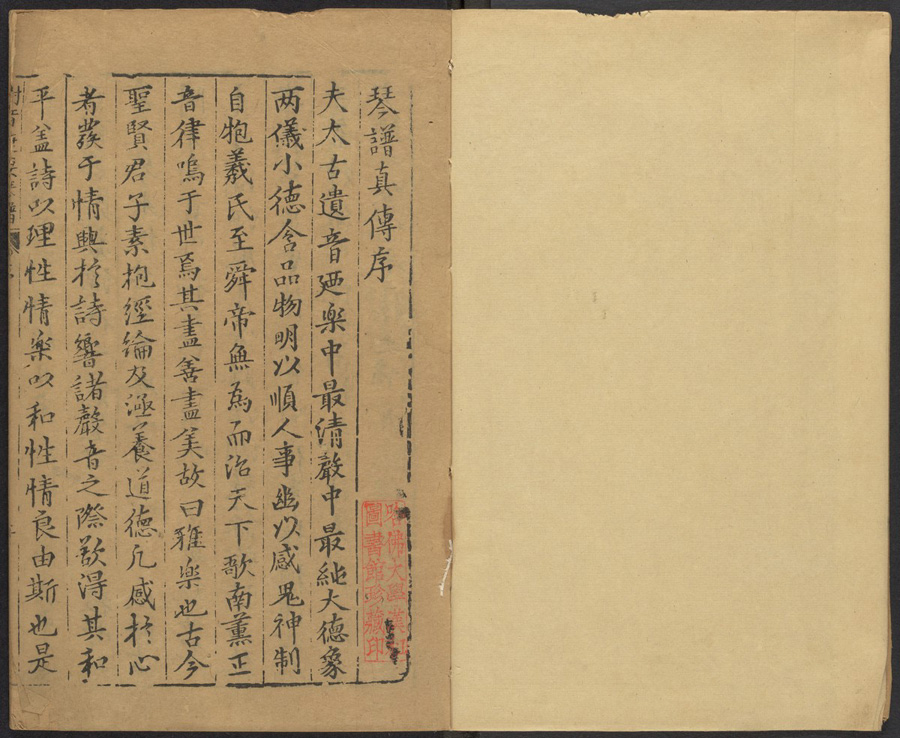 琴譜真傳序
夫太古遺音廼楽中最清聲中最純大德象
两儀小德含品物明以順人事幽以感鬼神制
自狍羲氏至舜帝無為而治天下歌南薫正
音律鳴于世焉其盡善盡美故曰雅楽也古今
聖賢君子素抱經綸及涵養道德凡感扵心
者發于情興扵詩響諸聲音之際欲得其和
平盖詩以理性情楽以和性情良由斯也是
哈佛大學漢和
圖書館珍藏印